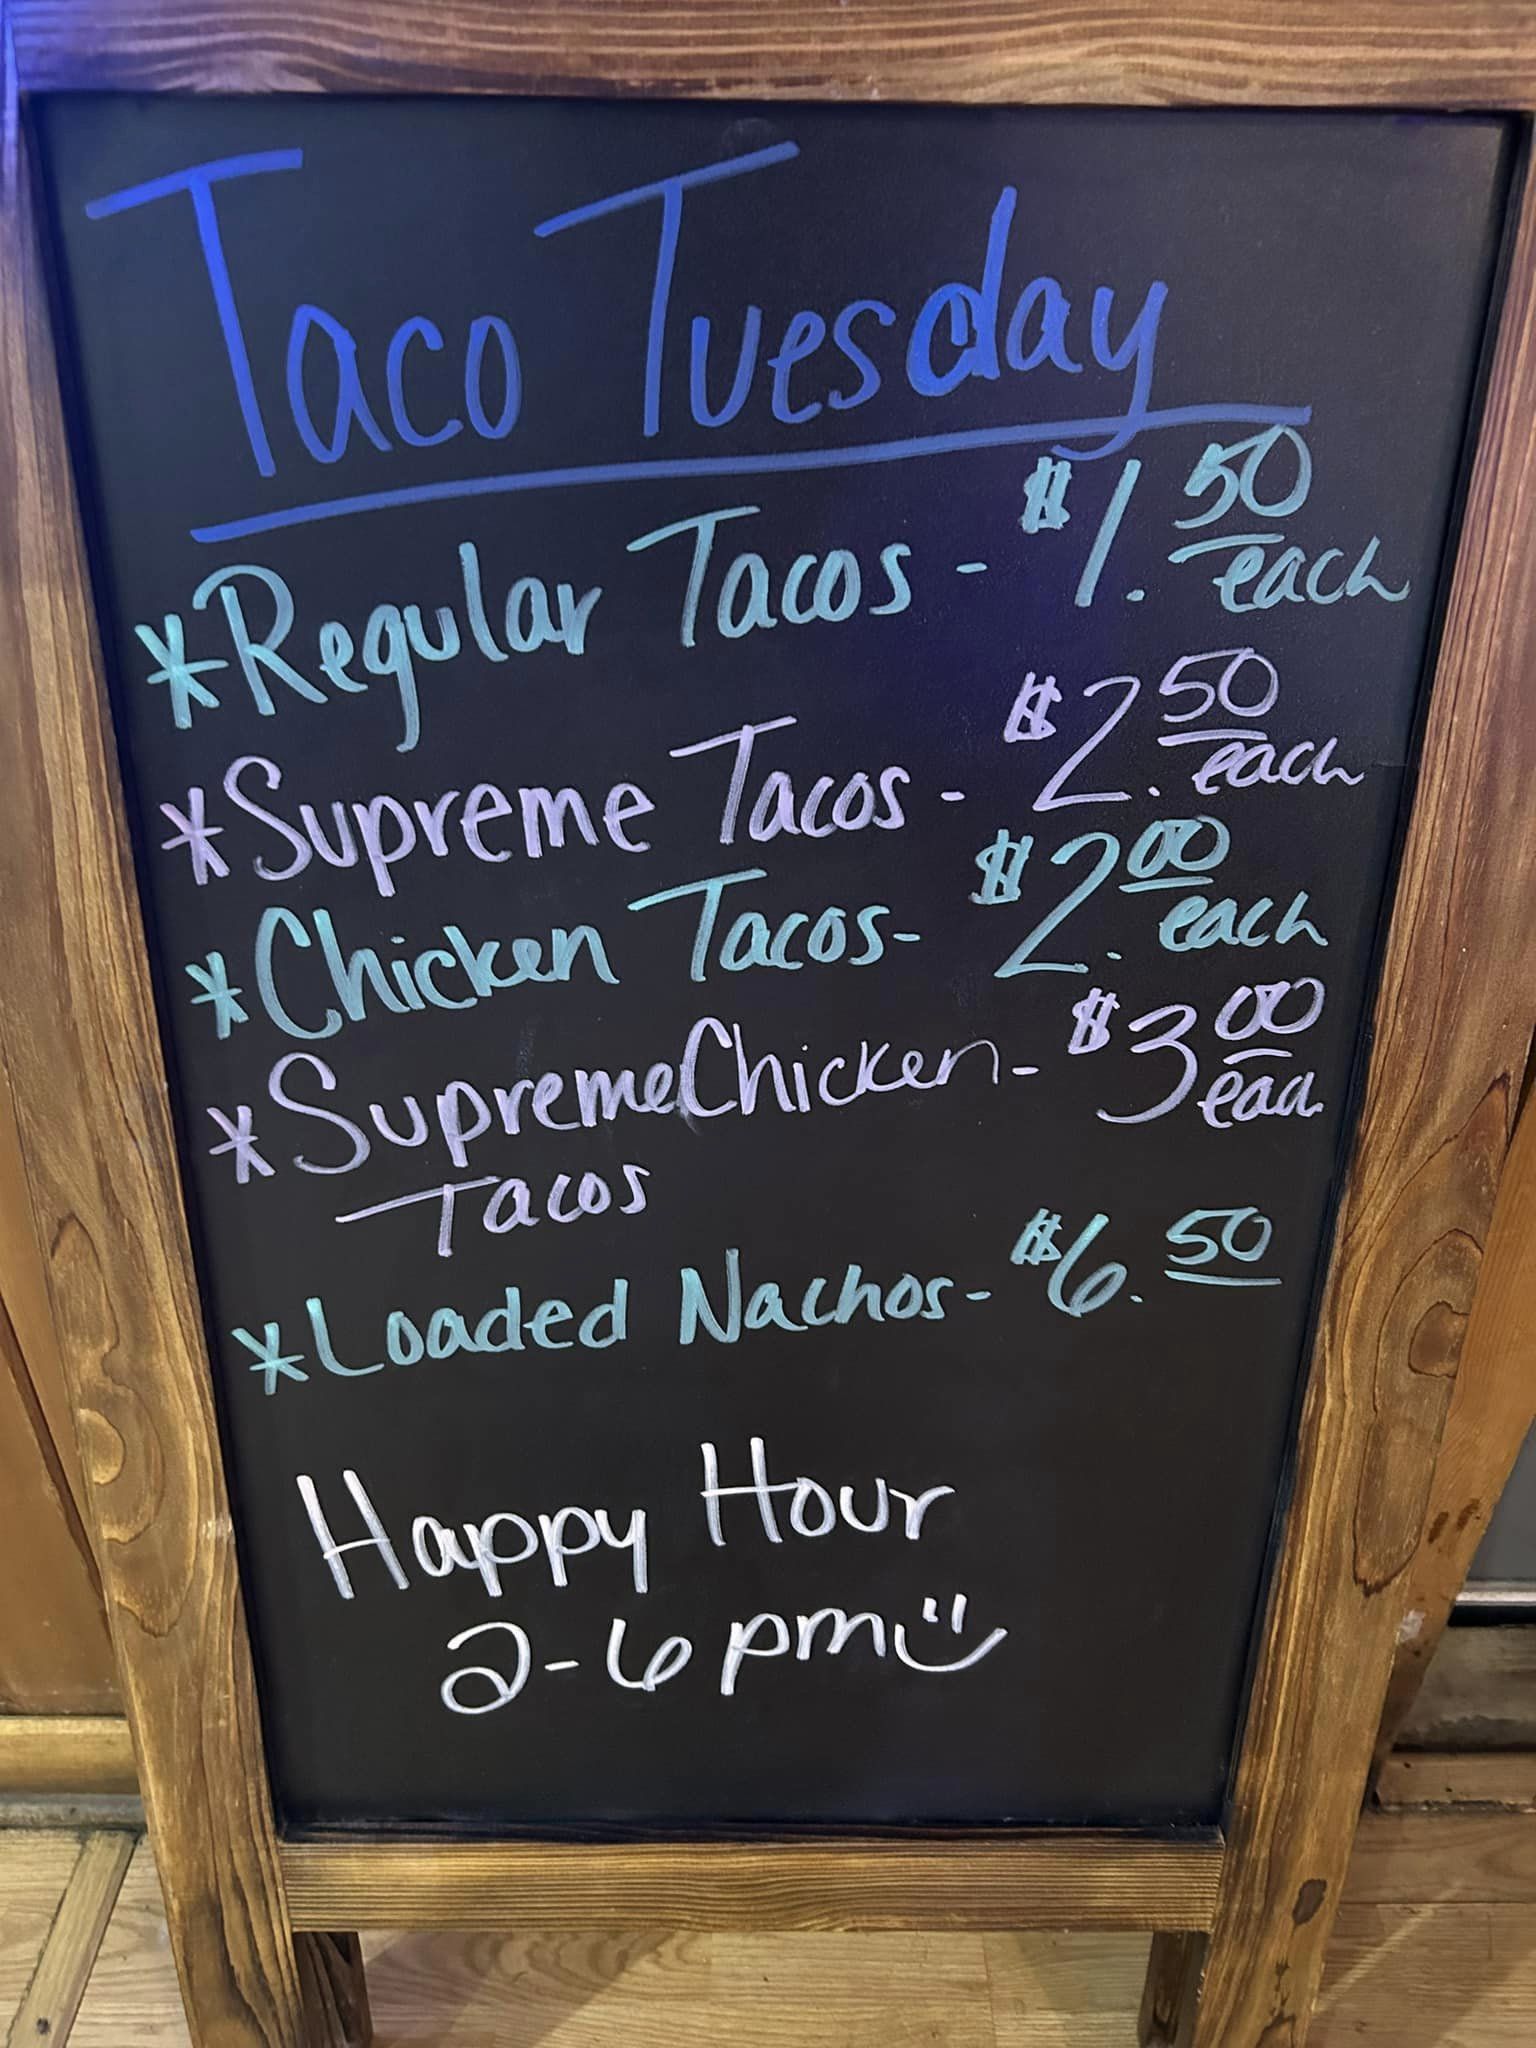 Taco Tuesday
*Regular Tacos - $1.50 each
*Supreme Tacos - $2.50 each
*Chicken Tacos - $2.00 each
*Supreme Chicken - $3.00 each
Tacos
*Loaded Nachos - $6.50
Happy Hour
2-6 pm